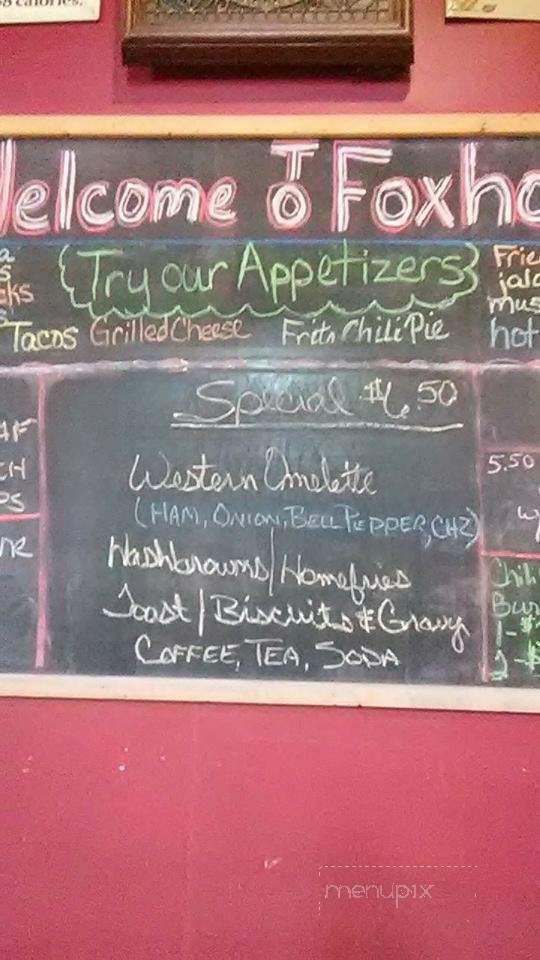 8 calories.
Welcome To Foxho
{Try our Appetizers}
cks
Tacos Grilled Cheese Frito Chili Pie
Frie
jala
mus
hot
Special $6.50
Western Omelette
(HAM, ONION, BELL PEPPER, CHZ)
Hashbrowns/Homefries
Toast/Biscuits & Gravy
COFFEE, TEA, SODA
5.50
w/
Chili
Bur
1-$
2-$
menupix